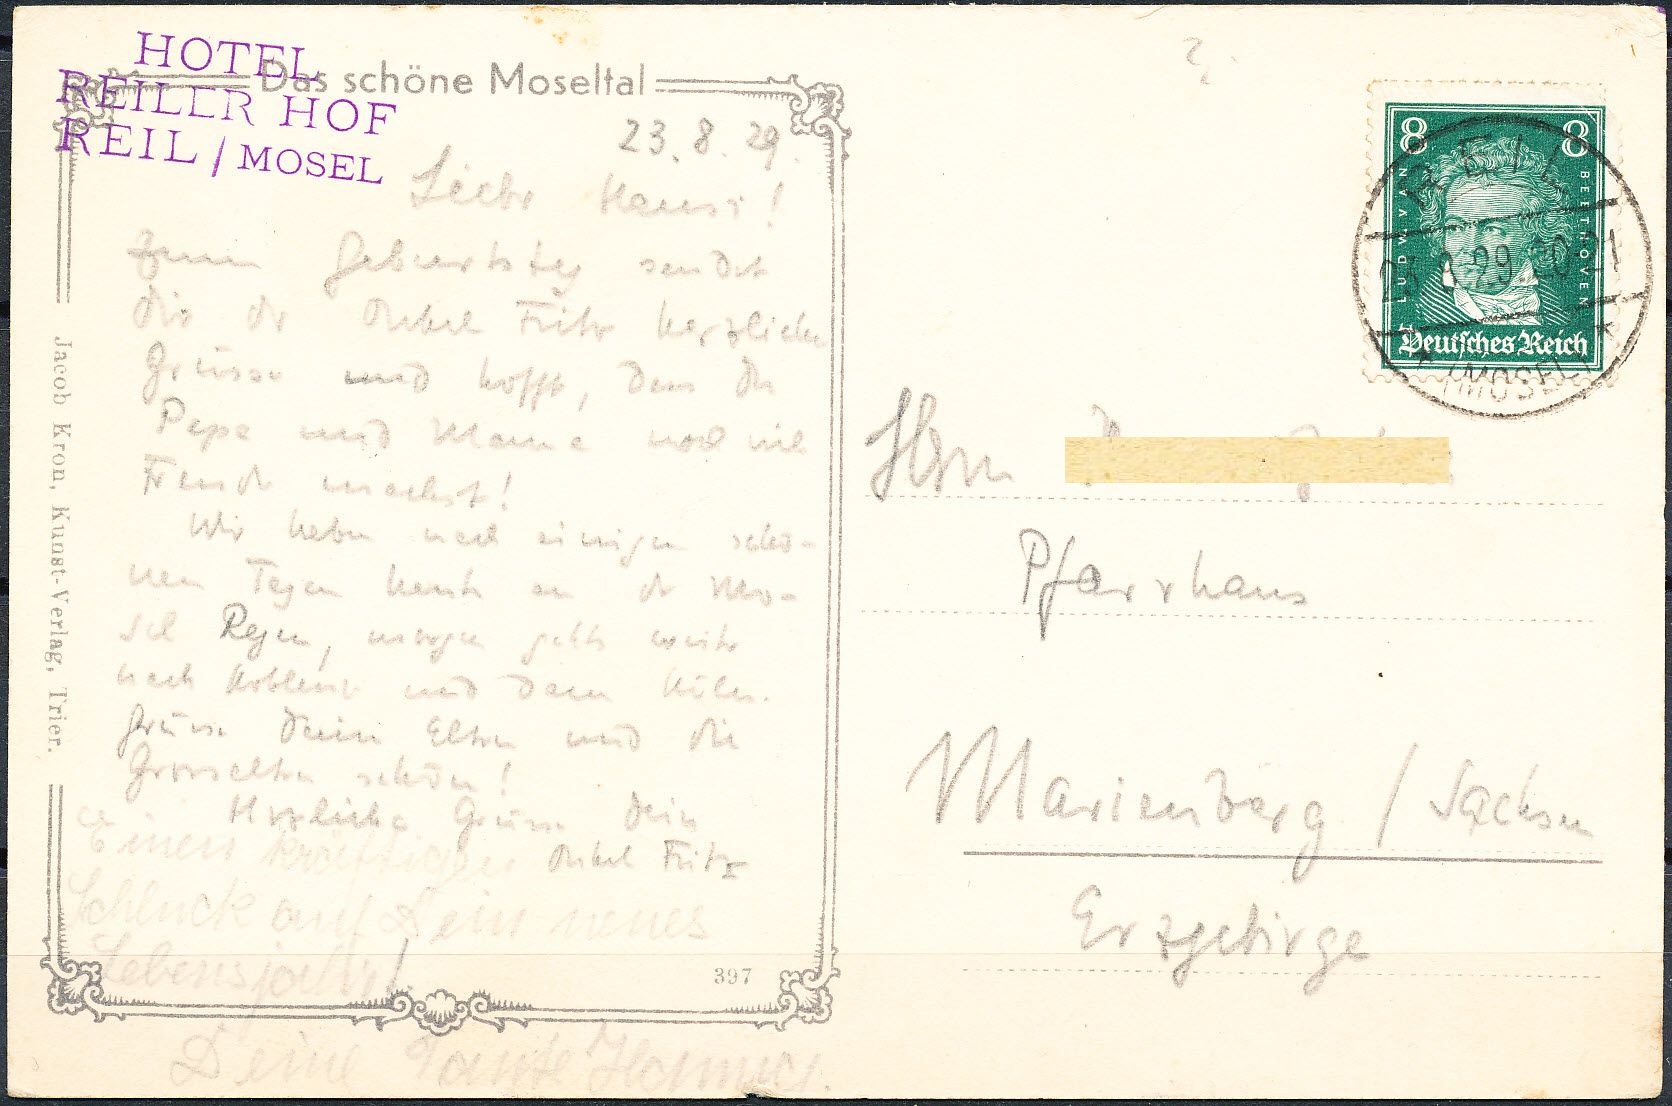 HOTEL
REILER HOF
REIL / MOSEL
Das schöne Moseltal
23.8.29.
Lieber Hansi!
Zum Geburtstag sendet
Dir der Onkel Fritz herzliche
Grüsse und hofft, dass Du
Papa und Mama noch viel
Freude machst!
Wir haben nach einigen schö-
nen Tagen heute an der Mo-
sel Regen, morgen gehts weiter
nach Koblenz und dann Köln.
Grüsse Deine Eltern und die
Grosseltern schön!
Herzliche Grüsse Dein
Onkel Fritz
Einen kräftigen
Schluck auf Dein neues
Lebensjahr!
Deine Tante
397
Jacob Kron, Kunst-Verlag, Trier.
8 8
LUDW. VAN BEETHOVEN
Deutsches Reich
REIL
29 20-21
(MOSEL)
Herrn
Pfarrhaus
Marienberg / Sachsen
Erzgebirge